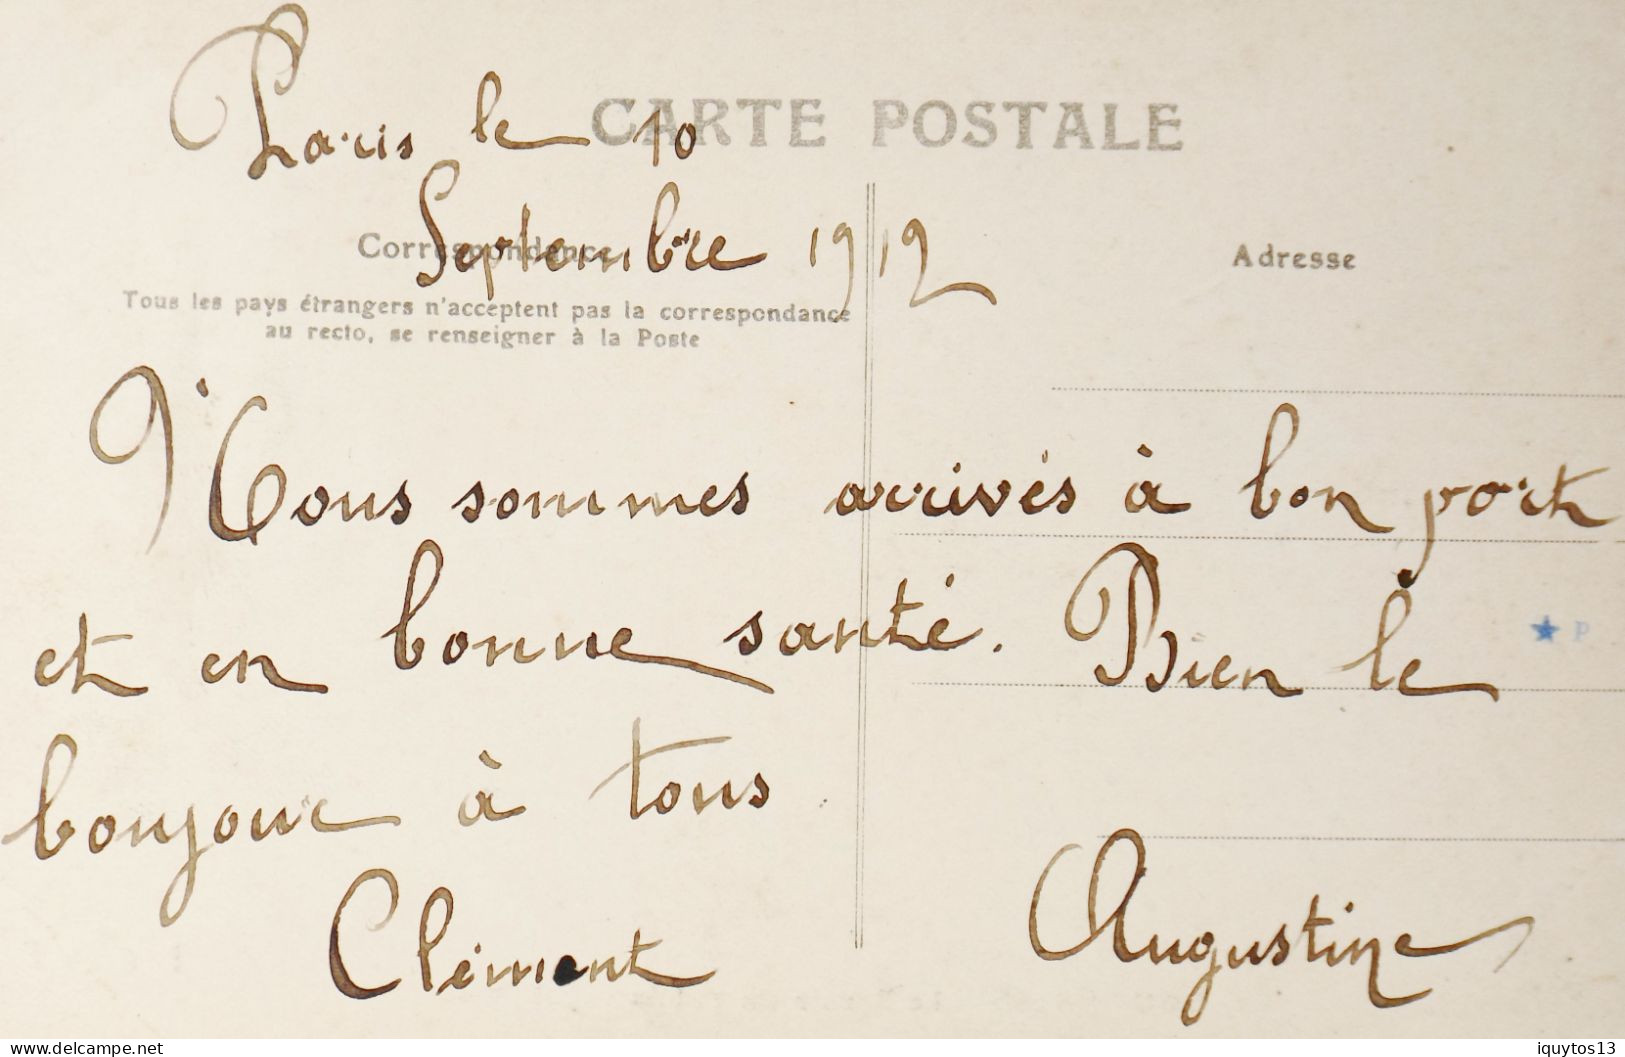 Paris le 10
CARTE POSTALE
Septembre 1912
Correspondance
Adresse
Tous les pays étrangers n'acceptent pas la correspondance
au recto, se renseigner à la Poste
Nous sommes arrivés à bon port
et en bonne santé. Bien le
★ P
bonjour à tous
Clément Augustine
delcampe.net
iquytos13